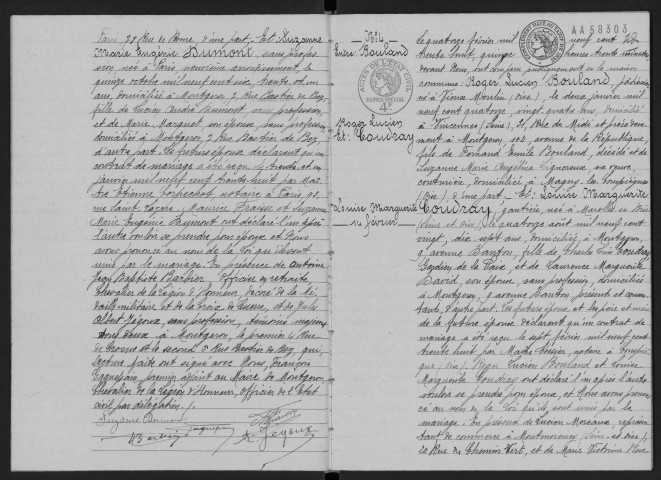 Paris, 28 Rue de Rome, d'une part. Et Suzanne
Marie Eugénie Dumont, sans profes-
sion, née à Paris, neuvième arrondissement, le
quinze octobre mil neuf cent six, trente et un
ans, domiciliée à Montgeron, 2 Rue Bastier de Bez,
fille de Lucien André Dumont sans profession
et de Marie Marguet son épouse, sans profession
domiciliés à Montgeron, 2 Rue Bastier de Bez
d'autre part. Les futurs époux déclarent qu'un
contrat de mariage a été reçu le trente et un
janvier mil neuf cent trente huit par Maî-
tre Etienne notaire à Paris,
rue Saint Lazare. Maurice et Suzanne
Marie Eugénie Dumont ont déclaré l'un après
l'autre vouloir se prendre pour époux et Nous
avons prononcé au nom de la loi qu'ils sont
unis par le mariage. En présence de Antoine
Jean Baptiste Barbier, Officier en retraite,
Chevalier de la Légion d'Honneur, décoré de la Mé-
daille militaire et de la Croix de Guerre, et de Jules
Albert Jégoux, sans profession, témoins majeurs
tous deux à Montgeron, le premier 4 Rue
de Crosne et le second 5 Rue Bastier de Bez, qui,
lecture faite ont signé avec Nous, François
premier adjoint au Maire de Montgeron,
Chevalier de la Légion d'Honneur, Officier de l'Etat
civil par délégation.
Suzanne Dumont
A. Jégoux
Nº 4
Entre: Bouland
Roger Lucien
Et: Coudray
Louise Marguerite
14 février
ACTES DE L'ÉTAT CIVIL
PAPIER SPÉCIAL
4F
AA 58303
Le quatorze février mil neuf cent
trente huit, quinze heures trente minutes,
devant Nous, ont comparu publiquement en la maison
commune: Roger Lucien Bouland,
né à Vieux Moulin (Oise), le deux janvier mil
neuf cent quatorze, vingt quatre ans, domicilié
à Vincennes (Seine), 21, Rue du Midi et précédem-
ment à Montgeron, 104, avenue de la République,
fils de Fernand Emile Bouland, décédé et de
Suzanne Marie Angelina Vigneraux, sa veuve,
couturière, domiciliée à Magny-les-Compiègne
(Oise), d'une part. Et: Louise Marguerite
Coudray, gantière, née à Marolles en Brie
(Seine et Oise) le quatorze août mil neuf cent
vingt, dix sept ans, domiciliée à Montgeron,
9 avenue Danton, fille de Charles Louis Coudray
Gardien de la Paix, et de Laurence Marguerite
David, son épouse, sans profession, domiciliés
à Montgeron, 9 avenue Danton, présents et consen-
tant, d'autre part. Les futurs époux et les père et mère
de la future épouse déclarent qu'un contrat de
mariage a été reçu le sept février mil neuf cent
trente huit par Maître notaire à Compiè-
gne (Oise). Roger Lucien Bouland et Louise
Marguerite Coudray ont déclaré l'un après l'autre
vouloir se prendre pour époux, et Nous avons pronon-
cé au nom de la loi qu'ils sont unis par le
mariage. En présence de Lucien Moreaux, représen-
tant de commerce à Montmorency (Seine et Oise),
20 Rue du Chemin Vert, et de Marie Victorine